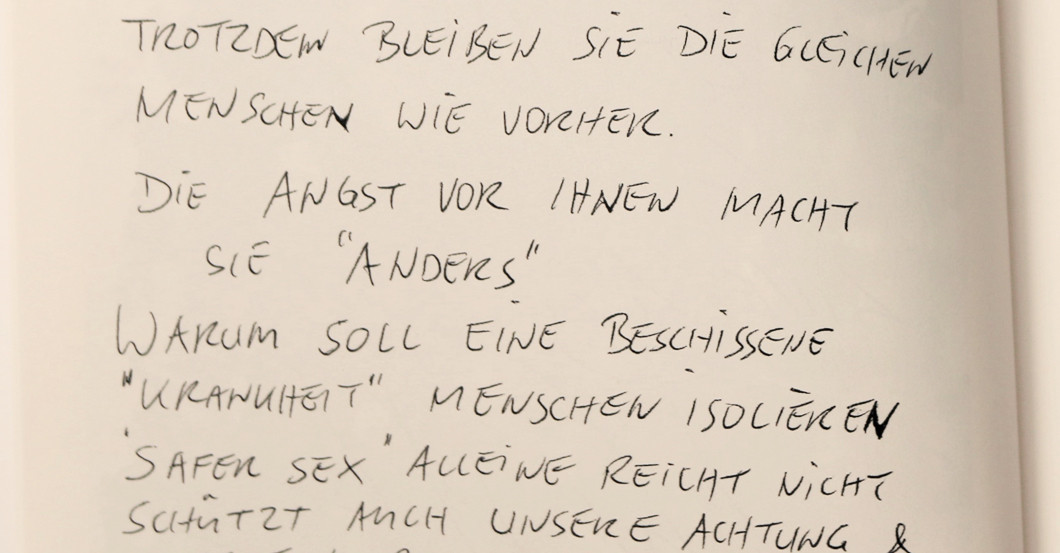 TROTZDEM BLEIBEN SIE DIE GLEICHEN
MENSCHEN WIE VORHER.
DIE ANGST VOR IHNEN MACHT
SIE "ANDERS"
WARUM SOLL EINE BESCHISSENE
"KRANKHEIT" MENSCHEN ISOLIEREN
"SAFER SEX" ALLEINE REICHT NICHT
SCHÜTZT AUCH UNSERE ACHTUNG &